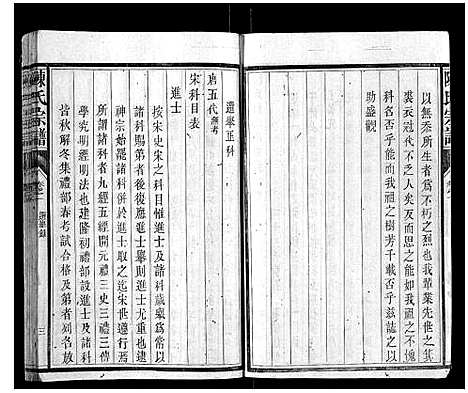 以無忝所生者為不朽之烈也我輩業先世之箕
裘衣冠代不乏人矣反而思之我祖之所屬望者
科名否乎能而我祖之樹芳千載否乎茲誌之以
助盛觀
選舉五科
唐五代無考
宋科目表
進士
按宋史宋之科目惟進士及諸科歲舉為常以
諸科賜第者後復應進士舉則進士尤重也逮
神宗始罷諸科併於進士迄宋世遵行焉
諸科者九經五經開元禮三史三禮三傳
學究明經明法也建隆初禮部設進士及諸科
皆秋解冬集禮部春考試合格及第者列名放
陳氏宗譜
卷二
選舉錄
三
陳氏宗譜